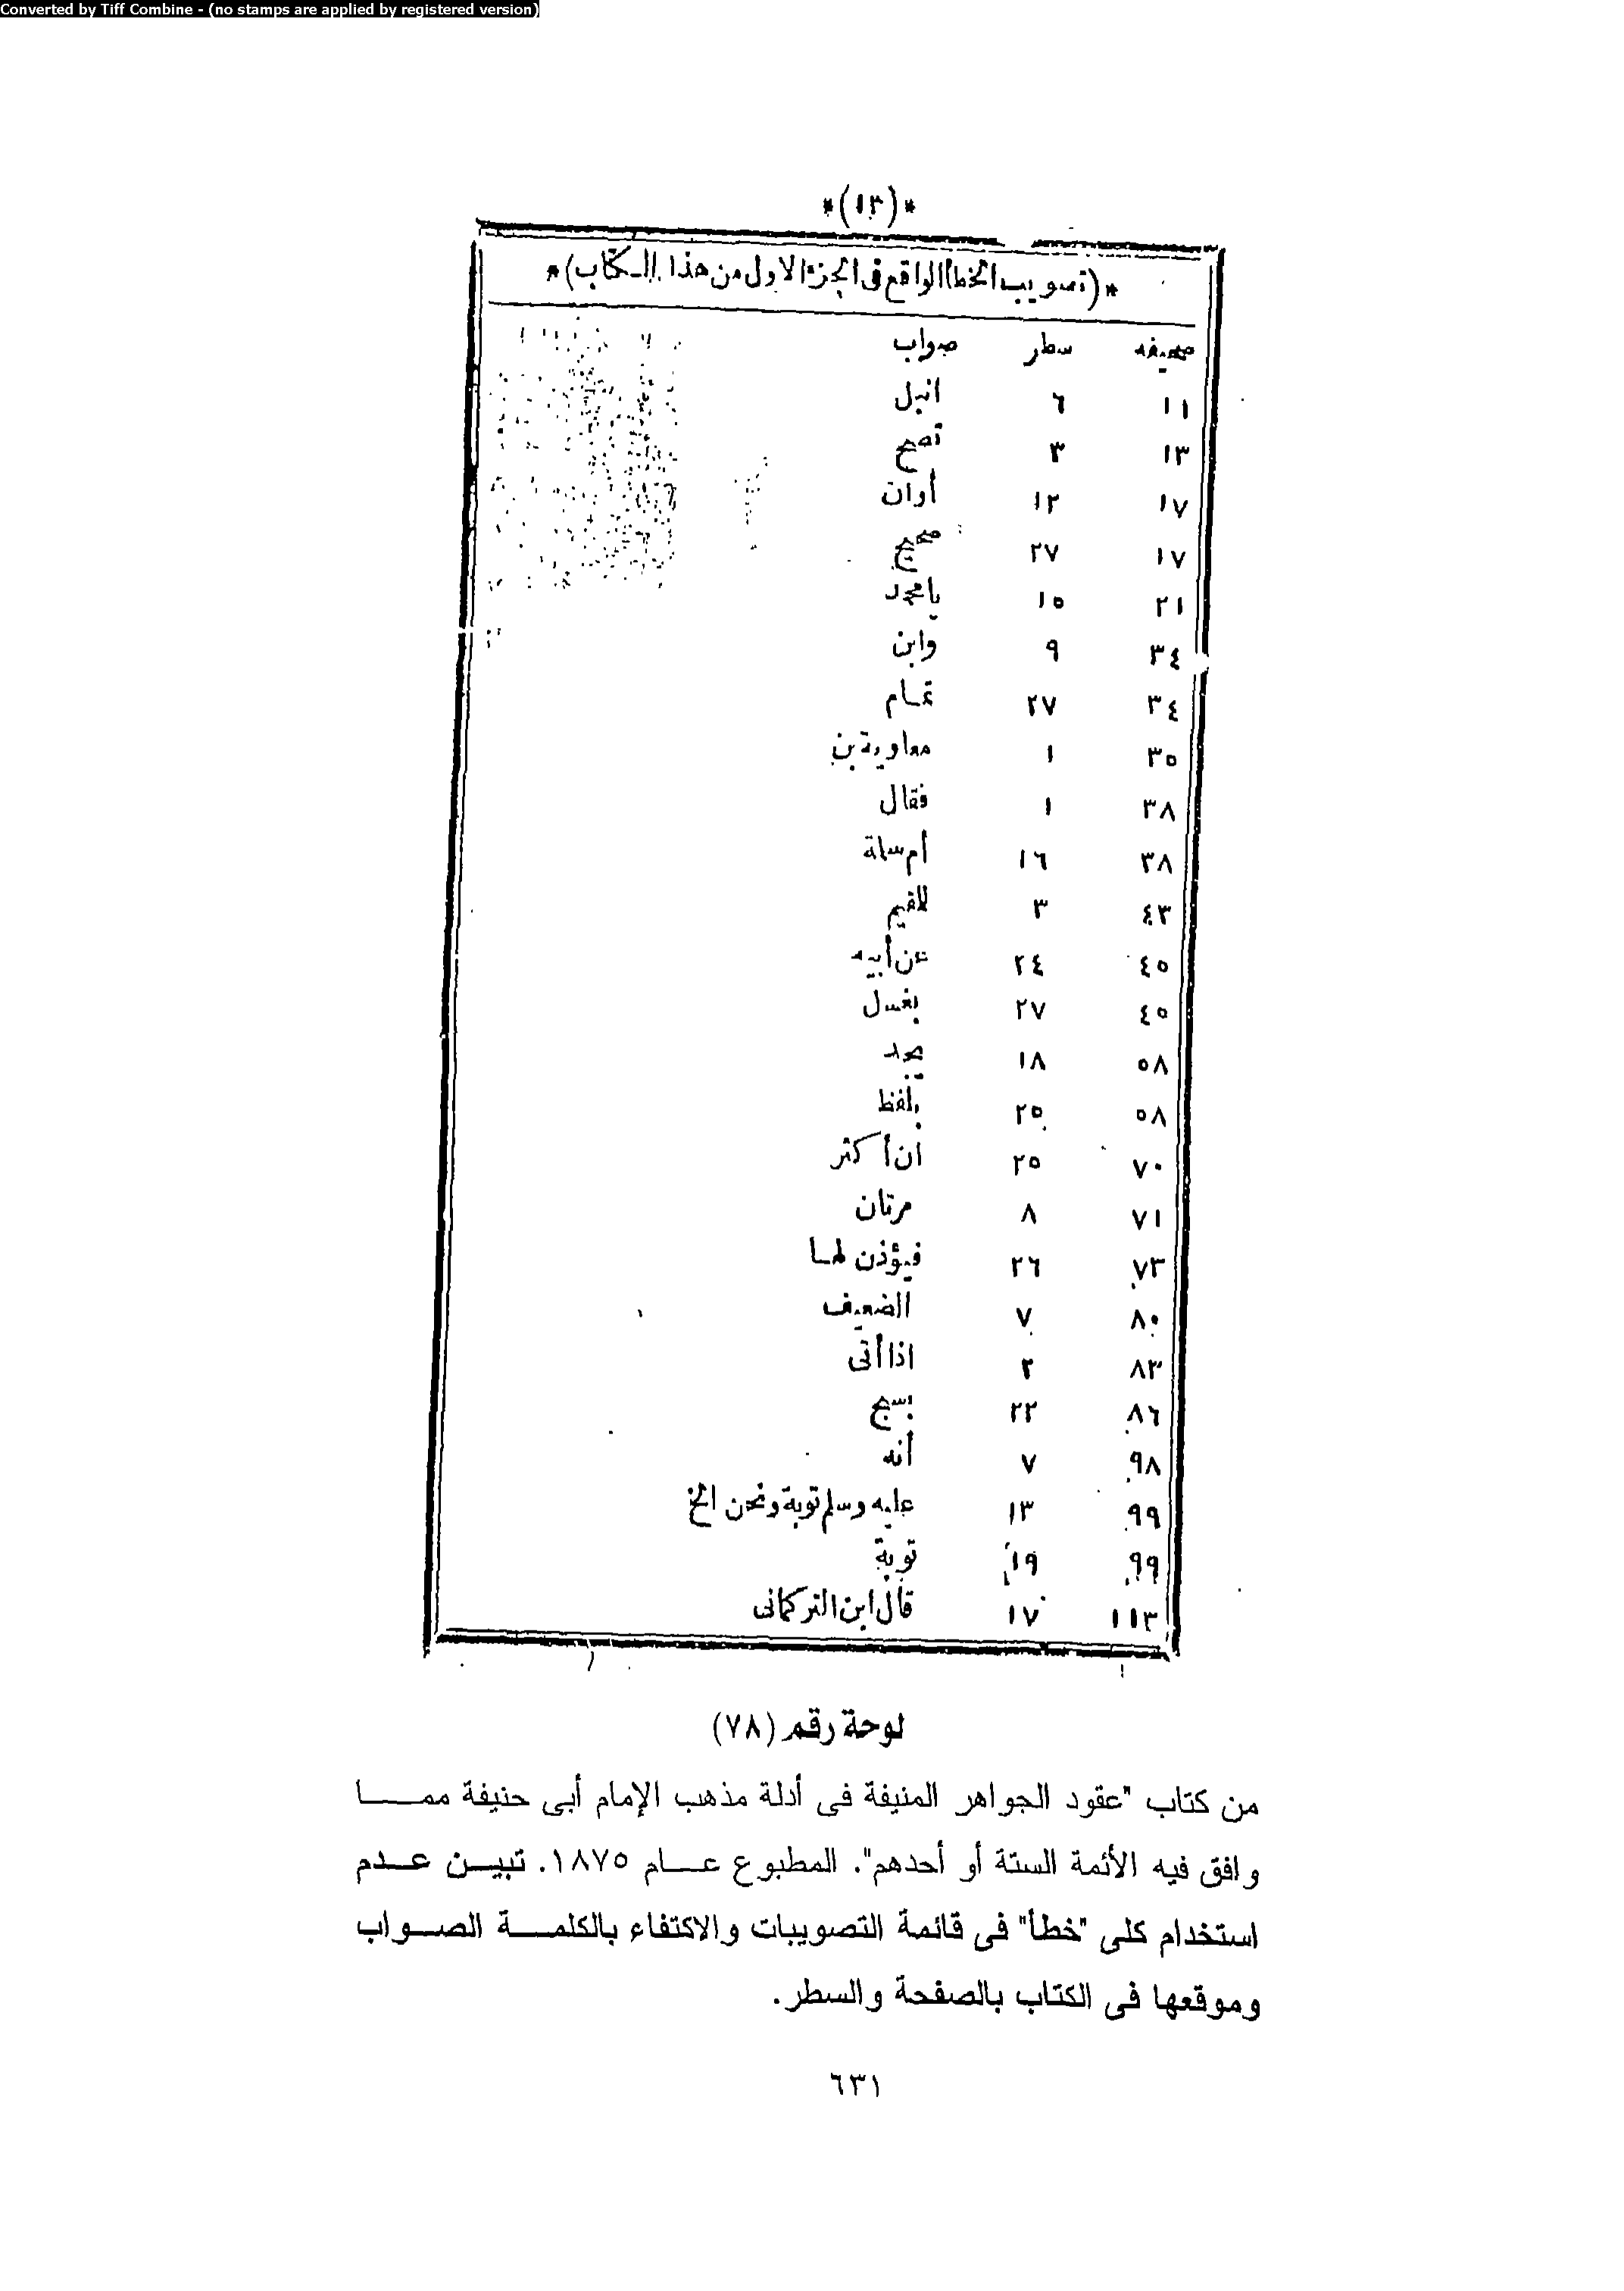 Converted by Tiff Combine - (no stamps are applied by registered version)
*(١٣)*
*(تصويب الخطأ الواقع في الجزء الاول من هذا الكتاب)*
صحيفه سطر صواب
١١ ٦
١٣ ٣ تصح
١٧ ١٢ أوان
١٧ ٢٧ صحيح
٢١ ١٥ يا محمد
٣٤ ٩ وابن
٣٤ ٢٧ تمام
٣٥ ١ معاوية بن
٣٨ ١ فقال
٣٨ ١٦ أم سلمة
٤٣ ٣ للقيم
٤٥ ٢٤ عن أبيه
٤٥ ٢٧ بغسل
٥٨ ١٨ يجد
٥٨ ٢٥ بلفظ
٧٠ ٢٥ ان أكثر
٧١ ٨ مرتان
٧٣ ٢٦ فيؤذن لهما
٨٠ ٧ الضعيف
٨٣ ٢ اذا أتى
٨٦ ٢٢
٩٨ ٧ أنه
٩٩ ١٣ عليه وسلم توبة ونحن الخ
٩٩ ١٩ توبة
١١٣ ١٧ قال ابن التركمانى
لوحة رقم (٧٨)
من كتاب "عقود الجواهر المنيفة فى أدلة مذهب الإمام أبى حنيفة ممـــا
وافق فيه الأئمة الستة أو أحدهم". المطبوع عـــام ١٨٧٥. تبيـــن عـــدم
استخدام كلى "خطأ" فى قائمة التصويبات والاكتفاء بالكلمـــة الصـــواب
وموقعها فى الكتاب بالصفحة والسطر.
٦٣١